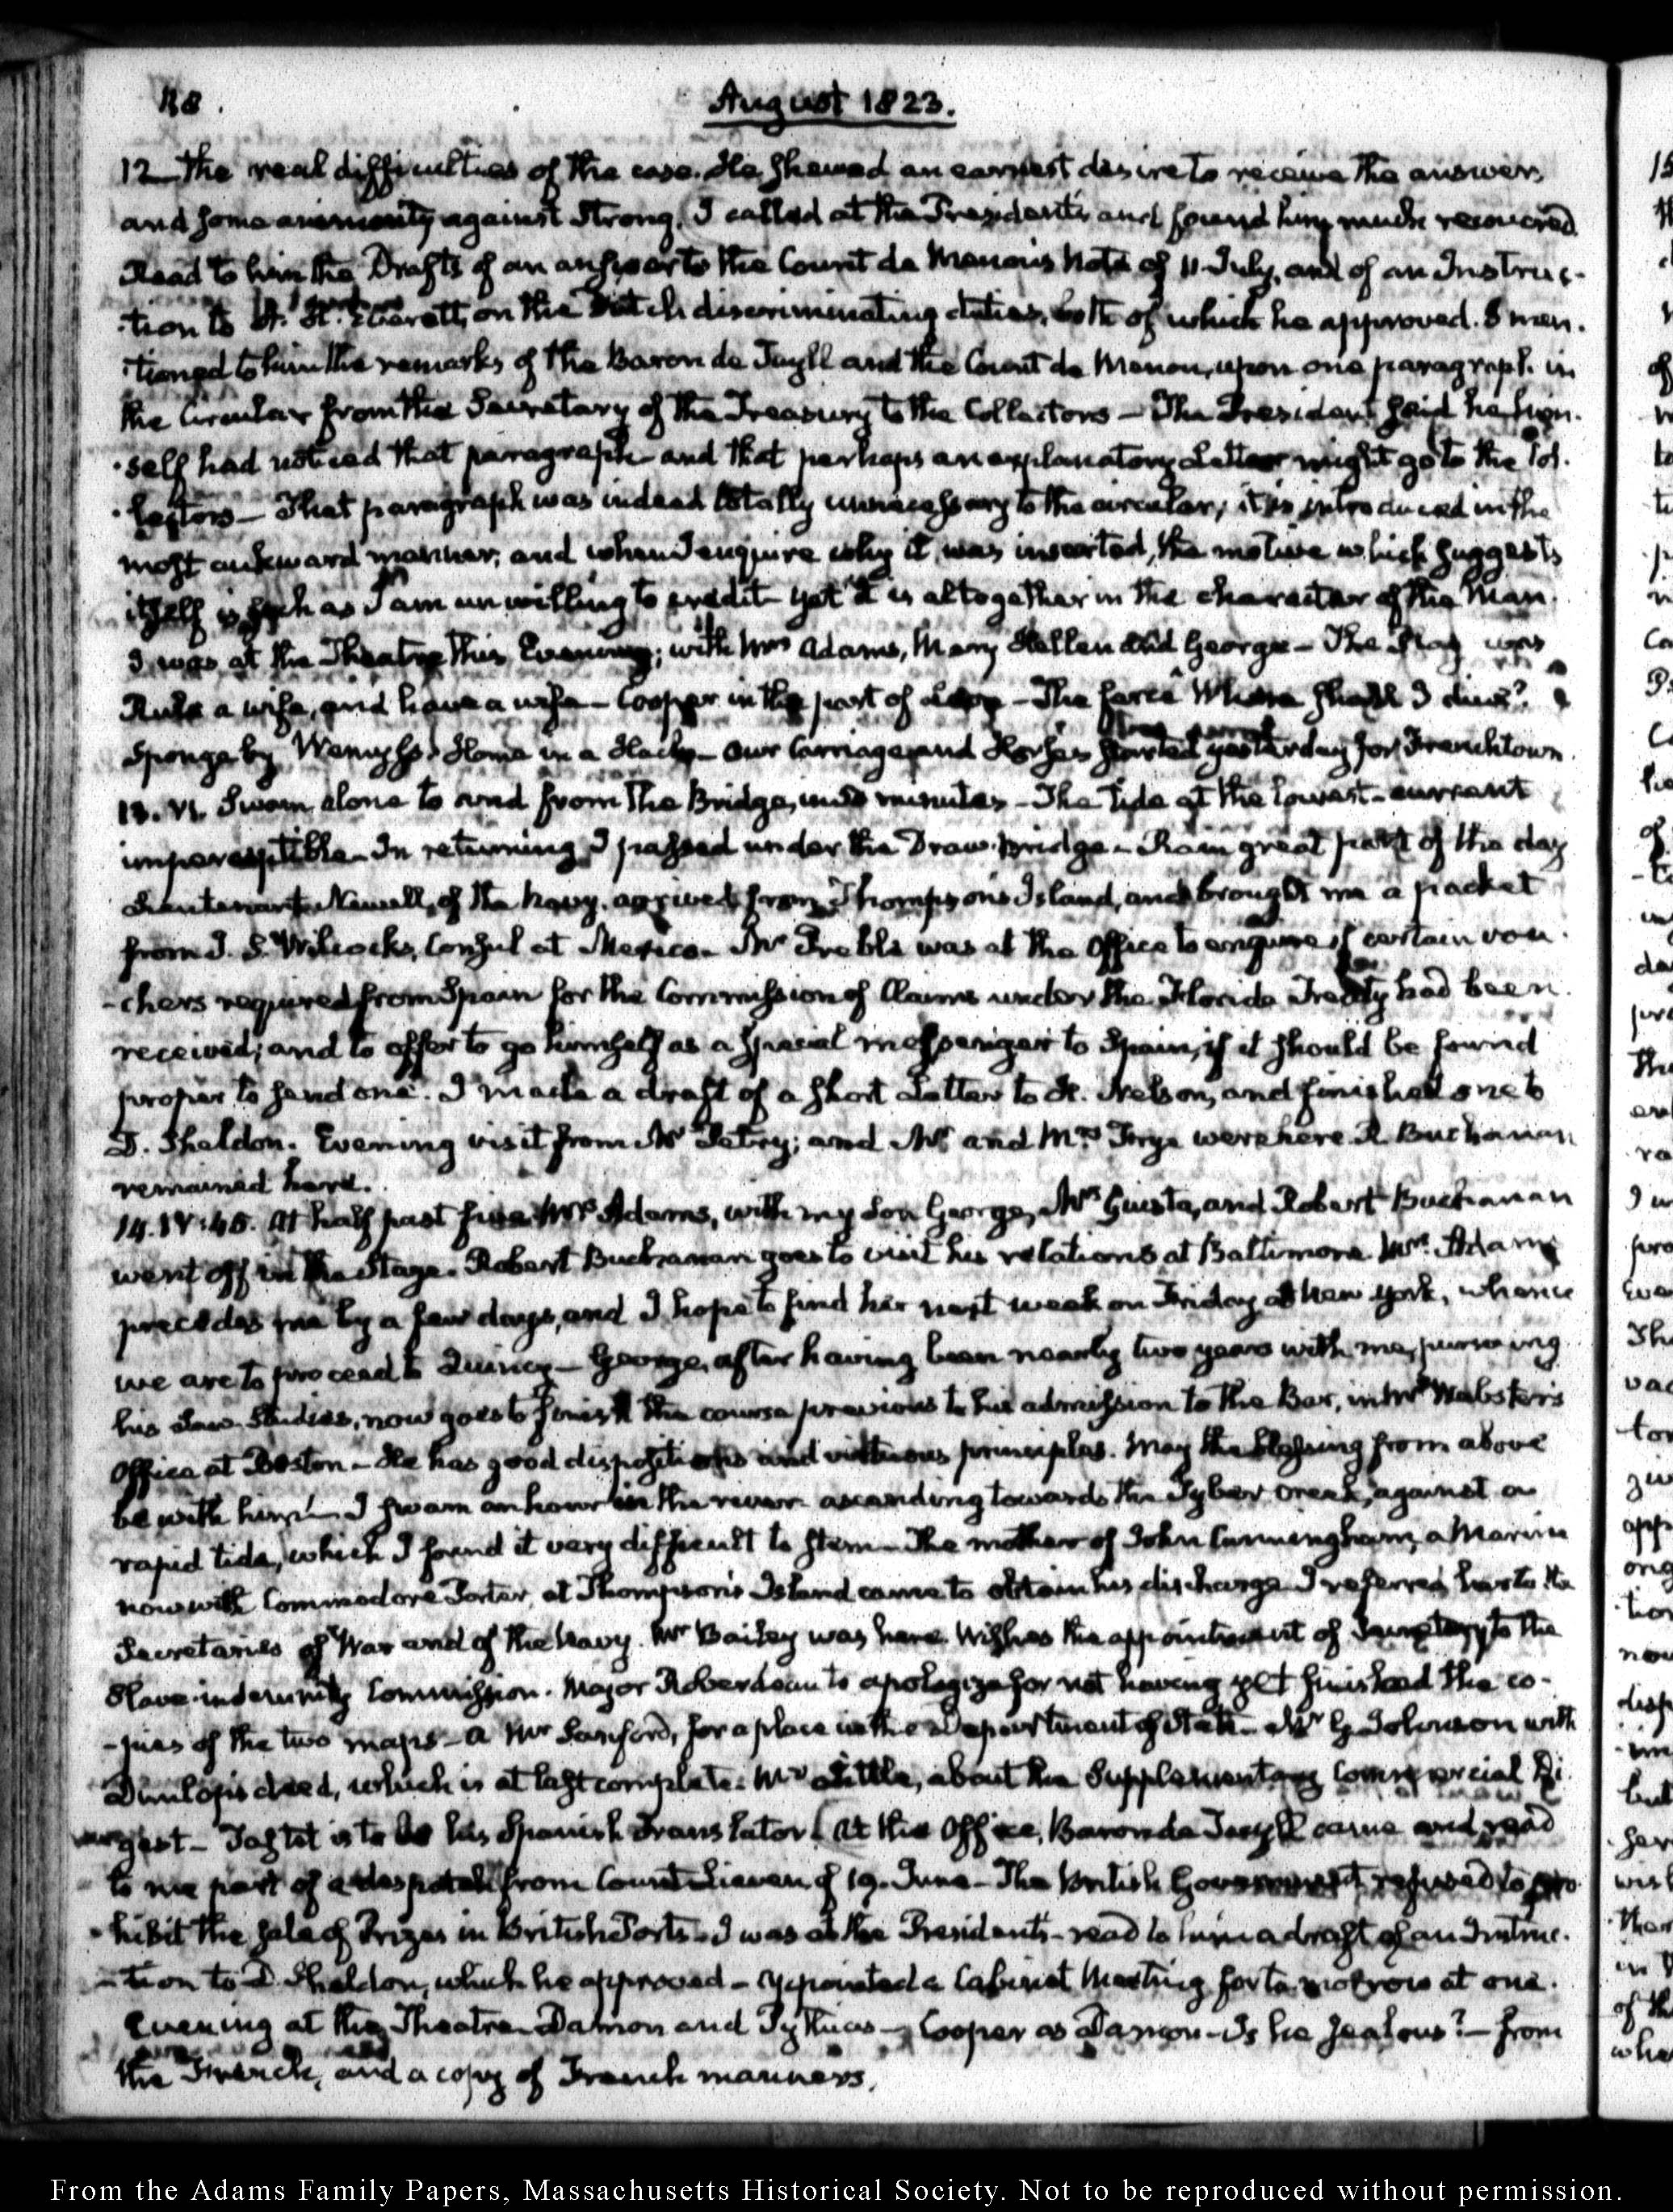 118.
August 1823.
12 The real difficulties of the case. He shewed an earnest desire to receive the answer,
and some animosity against Strong. I called at the President's and found him much recovered.
Read to him the Drafts of an answer to the Count de Menou's Note of 11 July, and of an Instruc-
-tion to A. H. Everett, on the Dutch discriminating duties, both of which he approved. I men-
-tioned to him the remarks of the Baron de Tuyll and the Count de Menou, upon one paragraph in
the Circular from the Secretary of the Treasury to the Collectors – The President said he him-
-self had noticed that paragraph and that perhaps an explanatory Letter might go to the Col-
-lectors – That paragraph was indeed totally unnecessary to the circular; it is introduced in the
most aukward manner, and when I enquire why it was inserted, the motive which suggests
itself is such as I am unwilling to credit yet it is altogether in the character of the Man.
I was at the Theatre this Evening; with Mrs Adams, Mary Hellen and George – The Play was
Rule a wife, and have a wife – Cooper in the part of Leon – The farce Where shall I dine?
Sponge by Wemyss. Home in a Hack – Our Carriage and Horses started yesterday for Frenchtown.
13. VI. Swam alone to and from the Bridge, in minutes – The tide at the lowest – current
imperceptible – In returning I passed under the Draw-bridge – Rain great part of the day
Lieutenant Newell, of the Navy, arrived from Thompson's Island, and brought me a packet
from J. S. Wilcocks, Consul at Mexico – Mr Preble was at the Office to enquire if certain vou-
-chers required from Spain for the Commission of Claims under the Florida Treaty had been
received; and to offer to go himself as a special messenger to Spain, if it should be found
proper to send one. I made a draft of a short Letter to H. Nelson, and finished one to
D. Sheldon. Evening visit from Mr Petry; and Mr and Mrs Frye were here. R Buchanan
remained here.
14. IV:45. At half past five Mrs Adams, with my Son George, Mr Giusta, and Robert Buchanan
went off in the Stage. Robert Buchanan goes to visit his relations at Baltimore. Mrs Adams
precedes me by a few days, and I hope to find her next week on Friday at New York, whence
we are to proceed to Quincy – George, after having been nearly two years with me, pursuing
his Law Studies, now goes to finish the course previous to his admission to the Bar, in Mr Webster's
Office at Boston – He has good dispositions and virtuous principles. May the blessing from above
be with him! – I swam an hour in the river ascending towards the Tyber creek, against a
rapid tide, which I found it very difficult to stem – The mother of John Cunningham, a Marine
now with Commodore Porter, at Thompson's Island came to obtain his discharge. I referred her to the
Secretaries of War and of the Navy. Mr Bailey was here. Wishes the appointment of Secretary to the
Slave-indemnity Commission. Major Roberdeau to apologize for not having yet finished the co-
-pies of the two maps – a Mr Sanford, for a place in the Department of State – Mr G. Johnson with
Dunlop's deed, which is at last complete. Mr Little, about the Supplementary Commercial Di-
-gest – is to be his Spanish Translator. At the Office, Baron de Tuyll came and read
to me part of a despatch from Count Lieven of 19. June – The British Government refused to pro-
-hibit the sale of Prizes in British Ports – I was at the President's – read to him a draft of an Instruc-
-tion to D. Sheldon, which he approved – appointed a Cabinet Meeting for to-morrow at one.
Evening at the Theatre – Damon and Pythias – Cooper as Damon – Is he Jealous? – from
the French, and a copy of French manners.
From the Adams Family Papers, Massachusetts Historical Society. Not to be reproduced without permission.